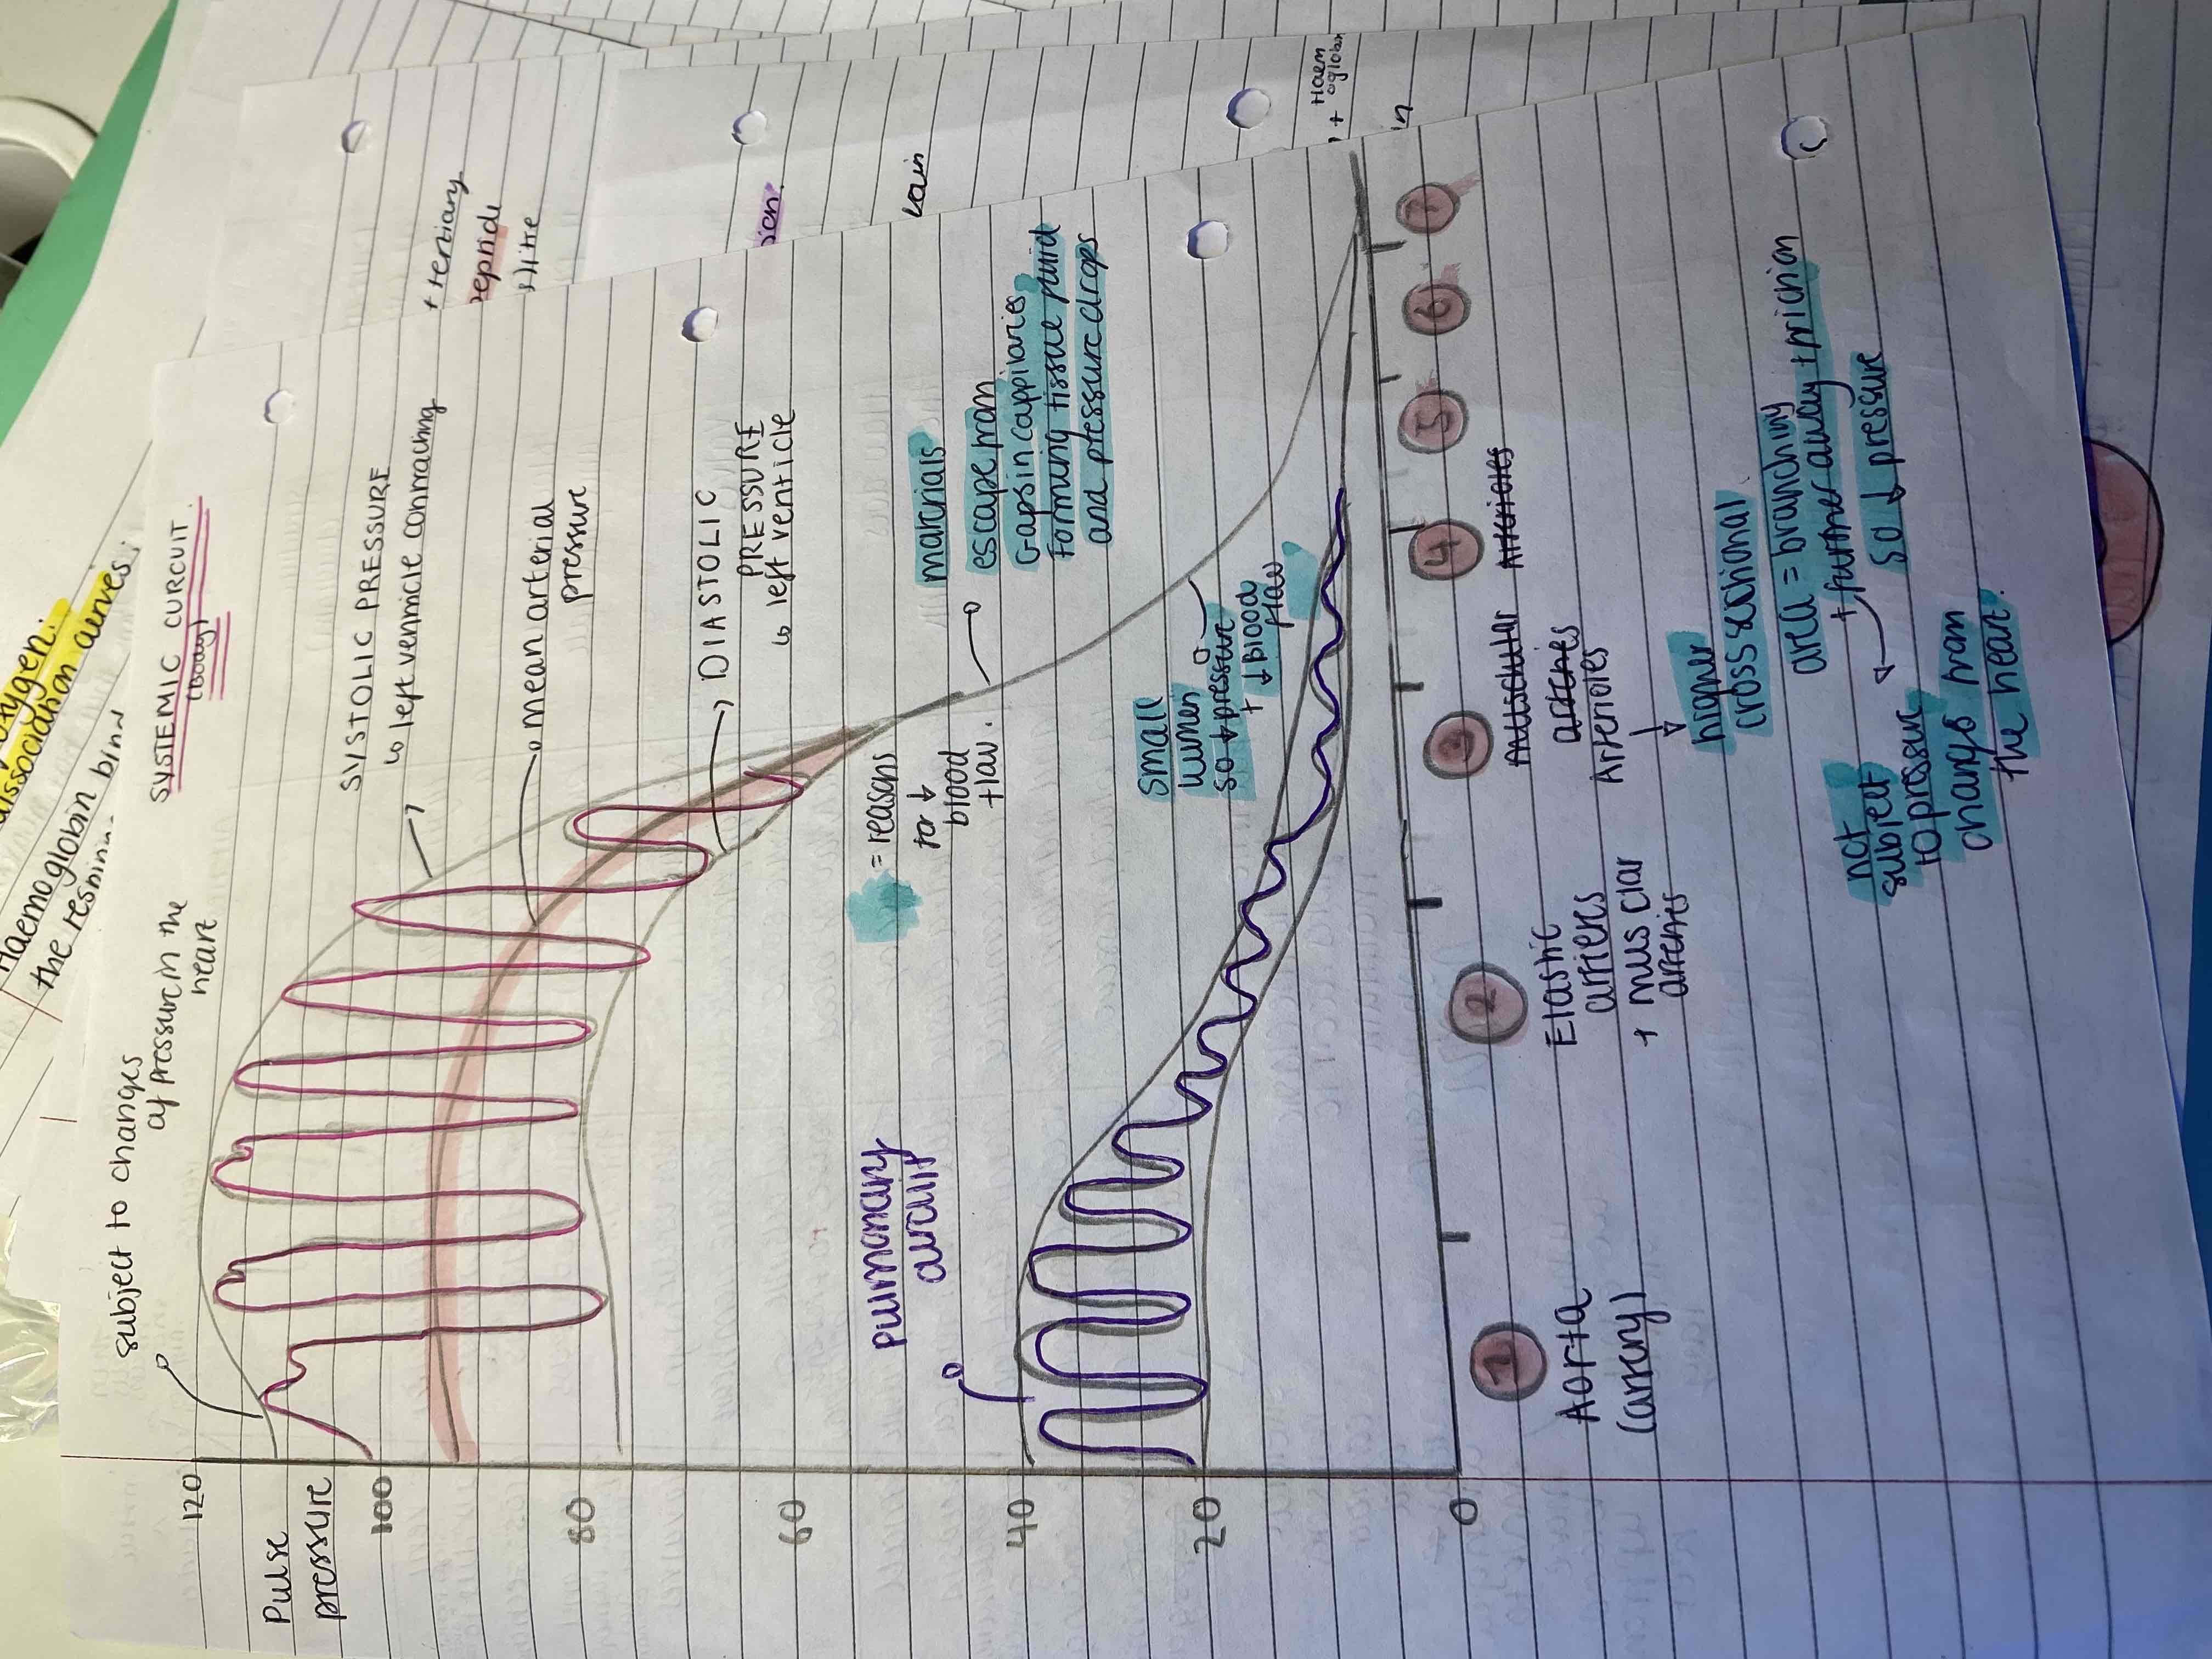 oxygen.
dissociation curves.
Haemoglobin bind
+ tertiary
eptide
+ Haem
oglobin
SYSTEMIC CURCUIT
(body)
subject to changes
of pressure in the
heart
SYSTOLIC PRESSURE
↳ left ventricle contracting
mean arterial
pressure
DIASTOLIC
PRESSURE
↳ left ventricle
120
Pulse
pressure
100
80
60
40
20
0
= reasons
for ↓
blood
flow.
materials
escape from
Gaps in cappilaries
forming tissue fluid
and pressure drops
pulmonary
circuit
small
lumen
so ↓ pressure
+ ↓ blood
flow
1
2
3
4
5
6
7
Aorta
(artery)
Elastic
arteries
+ muscular
arteries
Muscular
arteries
Arterioles
Arterioles
↓
higher
cross sectional
area = branching
+ further away + friction
so ↓ pressure
not
subject
to pressure
changes from
the heart.